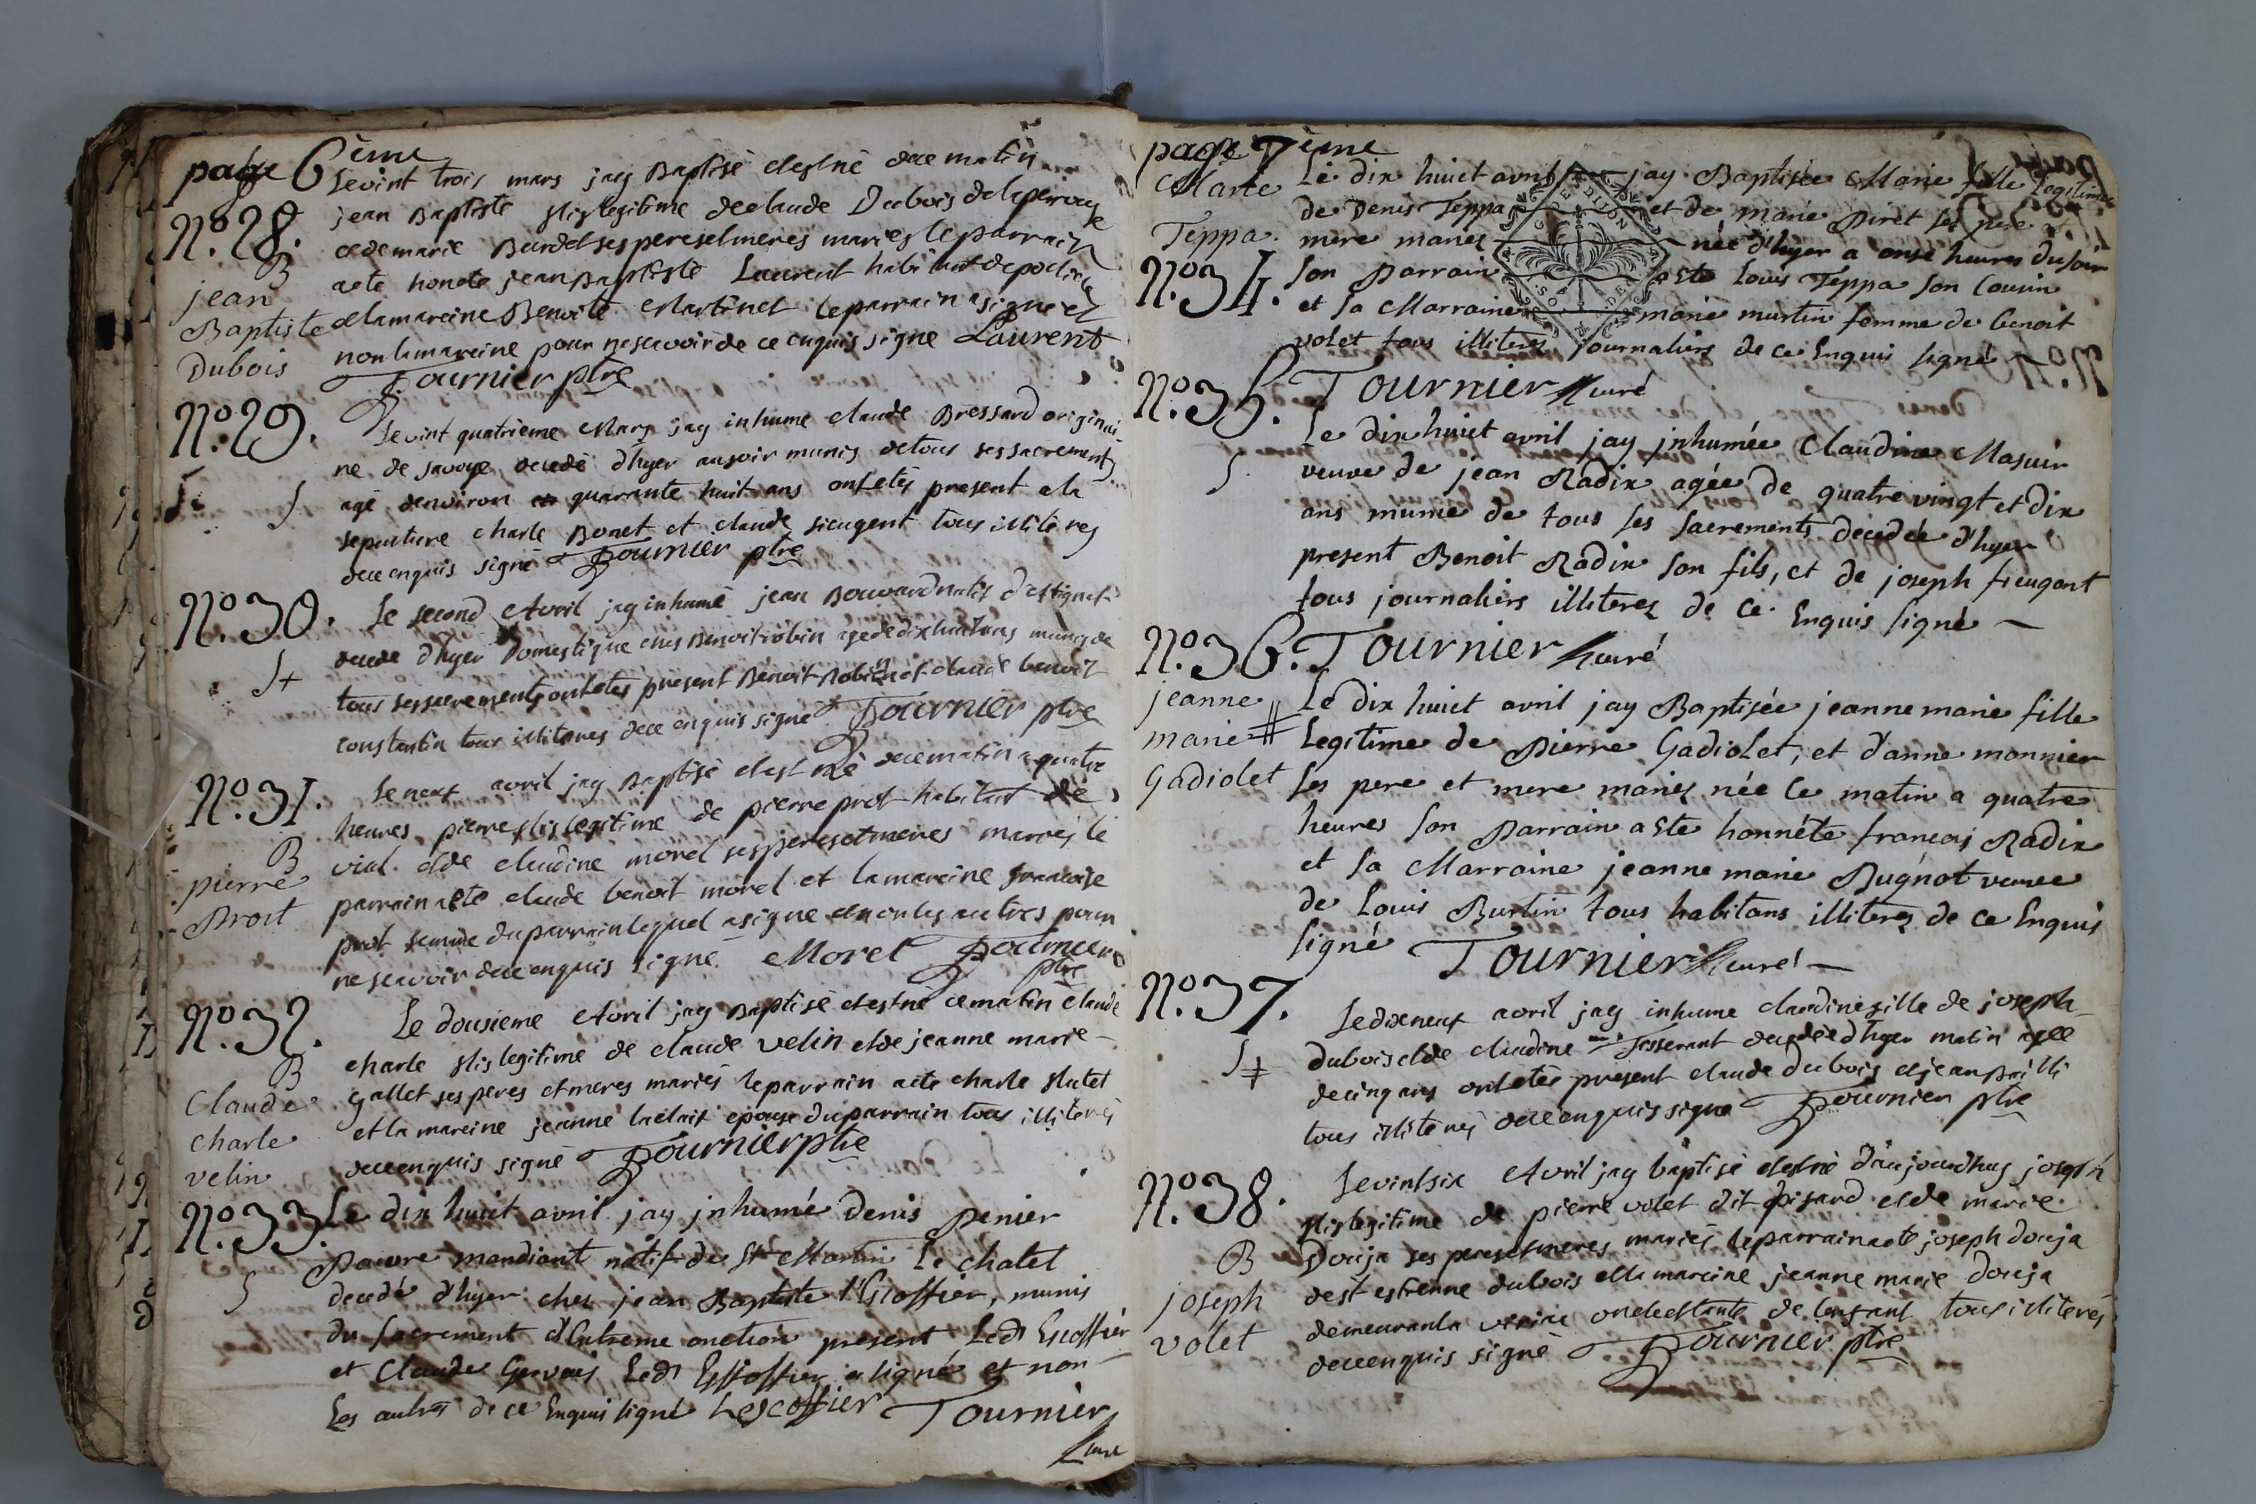 page 6ème
Levint trois mars jay Baptisé etestné ece matin
N°. 28. jean Baptiste filslegitime declaude Dubois delaperouse
B etdemarie Burdel sesperesetmeres mariés leparrain
jean aete honete jeanBaptiste Laurent habitant
Baptiste etlamareine Benoite Martinet leparrain asigne et
Dubois nonlamareine pour nescavoir de ce enquis signé Laurent
Tournier ptre
N°. 29. Levint quatrieme Mars jay inhume claude Bressard originai-
re de savoye decedé d'hyer ausoir munis detous sessacrements
S agé denviron quarrante huit ans ontetés present ala
sepulture charle Bonet et claude sieugent tous illiteres
dece enquis signé Tournier ptre
N°. 30. Le second Avril jay inhumé jean Bouvard natif
S+ decede d'hyer Domestique ches Benoitrobin agédedixhuitans munis de
tous sessacrements ontetés present Benoit Robin et claude benoit
constantin tous illiteres dece enquis signé Tournier ptre
N°. 31. Leneuf avril jay Baptisé etest né decematin a quatre
heures pierre filslegitime de pierre prot habitant de
B vial etde claudine morel sesperesetmeres mariés le
pierre parrain aete claude benoit morel et lamareine francoise
Broit prot femme duparrain lequel asigne etnonles autres pour
nescavoir dece enquis signé Morel Tournier
ptre
N°. 32. Le dousieme Avril jay Baptisé etestné cematin claude
B charle filslegitime de claude velin etde jeanne marie
Claude gallet sesperes etmeres mariés leparrain aete charle
charle et la mareine jeanne epouse duparrain tous illiterés
velin deceenquis signé Tournier ptre
N°. 33. Le dix huict avril jay jnhumé denis penier
S Pauvre mandiant natif de St Martin Le chatel
decedé d'hyer ches jean Baptiste l'Escoffier, munis
du sacrement d'Extreme onction present Ledt Escoffier
et Claude Gervais Ledt Escoffier a signé et non
Les autres de ce Enquis signé Lescoffier Tournier
Curé
page 7ème
Marie Le dix huict avril jay Baptisée Marie fille Legitime
Teppa. de Denis Teppa et de marie Piret ses pere
mere mariés née d'hyer a onse heures dusoir
N°. 34. son Parrain aEte Louis Teppa son Cousin
et sa Marraine marie murtin femme de benoit
volet tous illiteres journaliers de ce Enquis signé
N°. 35. Tournier Curé
Le dix huict avril jay jnhumée Claudine Masuir
S veuve de jean Radix agée de quatre vingt et dix
ans munie de tous ses sacrements decedée d'hyer
present Benoit Radix son fils, et de joseph sieugent
tous journaliers illiteres de ce Enquis signé
N°. 36. Tournier Curé
jeanne Le dix huict avril jay Baptisée jeanne marie fille
marie Legitime de Pierre Gadiolet, et d'anne monnier
Gadiolet ses pere et mere mariés née Ce matin a quatre
heures son Parrain aEte honnéte francois Radix
et sa Marraine jeanne marie Bugnot veuve
de Louis Burtin tous habitans illiteres de ce Enquis
signé Tournier Curé
N°. 37. Ledixneuf avril jay inhume claudine fille de joseph
S duboisetde claudine Tisserant decedée d'hyer matin agée
decinq ans ontetés present claude dubois et jean
tous illiterés dece enquis signé Tournier ptre
N°. 38. Levintsix Avril jay baptisé etestné d'aujourdhuy joseph
filslegitime de pierre volet dit pisard etde marie
B Douja ses peresetmeres mariés leparrain aete joseph douja
joseph de st estienne dubois etla mareine jeanne marie douja
volet demeuranta de lenfant tous illiterés
deceenquis signé Tournier ptre